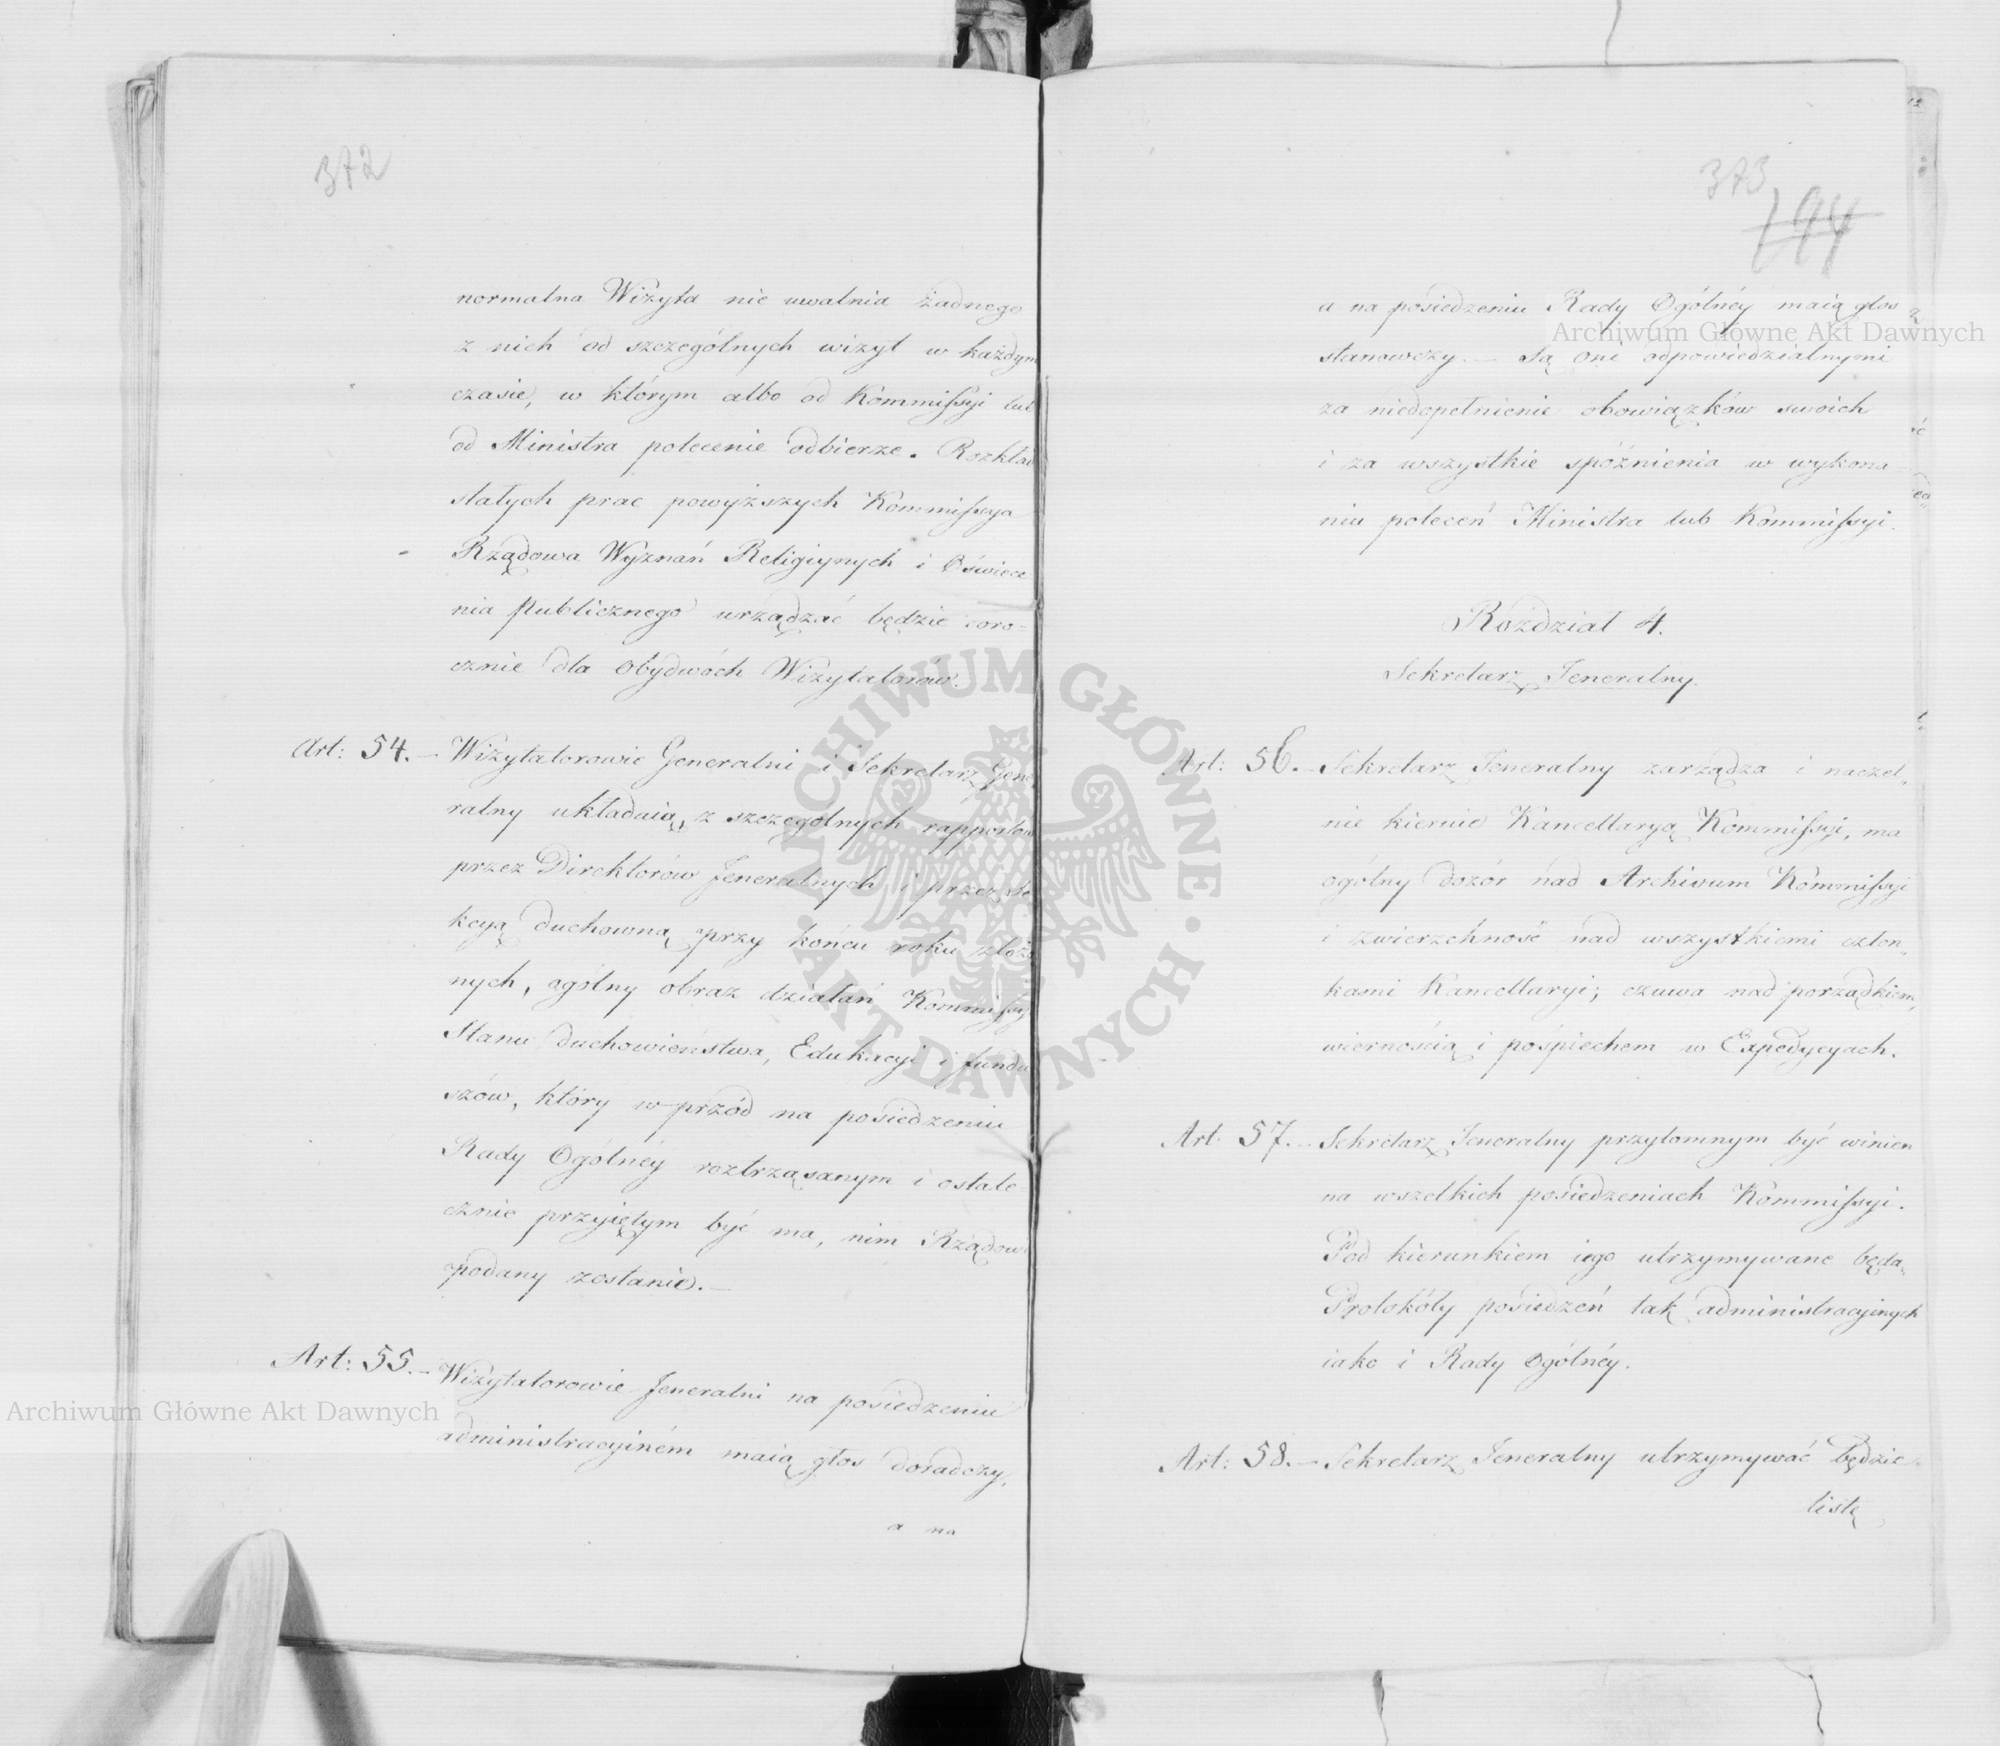 372
normalna Wizyta nie uwalnia żadnego
z nich od szczególnych wizyt w każdym
czasie, w którym albo od Kommissyi lub
od Ministra polecenie odbierze. Rozkład
stałych prac powyższych Kommissya
Rządowa Wyznań Religiynych i Oświece
nia Publicznego urządzać będzie coro=
cznie dla obydwóch Wizytatorów.
Art: 54. — Wizytatorowie Generalni i Sekretarz Gene
ralny układaią, z szczególnych rapportów
przez Direktorów Jeneralnych i przez Se
kcyą duchowną przy końcu roku złożo
nych, ogólny obraz działań Kommissyi
Stanu duchowieństwa, Edukacyi i fundu
szów, który w przód na posiedzeniu
Rady Ogólnéy roztrząsanym i ostate
cznie przyiętym być ma, nim Rządowi
podany zostanie. —
Art: 55. — Wizytatorowie Jeneralni na posiedzeniu
administracyiném maią głos doradczy,
a na
373
194
a na posiedzeniu Rady Ogólnéy maią głos
stanowczy. — Są oni odpowiedzialnymi
za niedopełnienie obowiązków swoich
i za wszystkie spóźnienia w wykona
niu poleceń Ministra lub Kommissyi.
Rozdział 4.
Sekretarz Jeneralny.
Art: 56. — Sekretarz Jeneralny zarządza i naczel„
nie kieruie Kancellaryą Kommissyi, ma
ogólny dozór nad Archivum Kommissyi
i zwierzchność nad wszystkiemi człon„
kami Kancellaryi; czuwa nad porządkiem,
wiernością i pośpiechem w Expedycyach.
Art. 57. — Sekretarz Jeneralny przytomnym być winien
na wszelkich posiedzeniach Kommissyi.
Pod kierunkiem iego utrzymywane będą
Protokóły posiedzeń tak administracyinych
iako i Rady Ogólnéy.
Art: 58. — Sekretarz Jeneralny utrzymywać będzie
listę
Archiwum Główne Akt Dawnych
Archiwum Główne Akt Dawnych
ARCHIWUM GŁÓWNE · AKT DAWNYCH ·